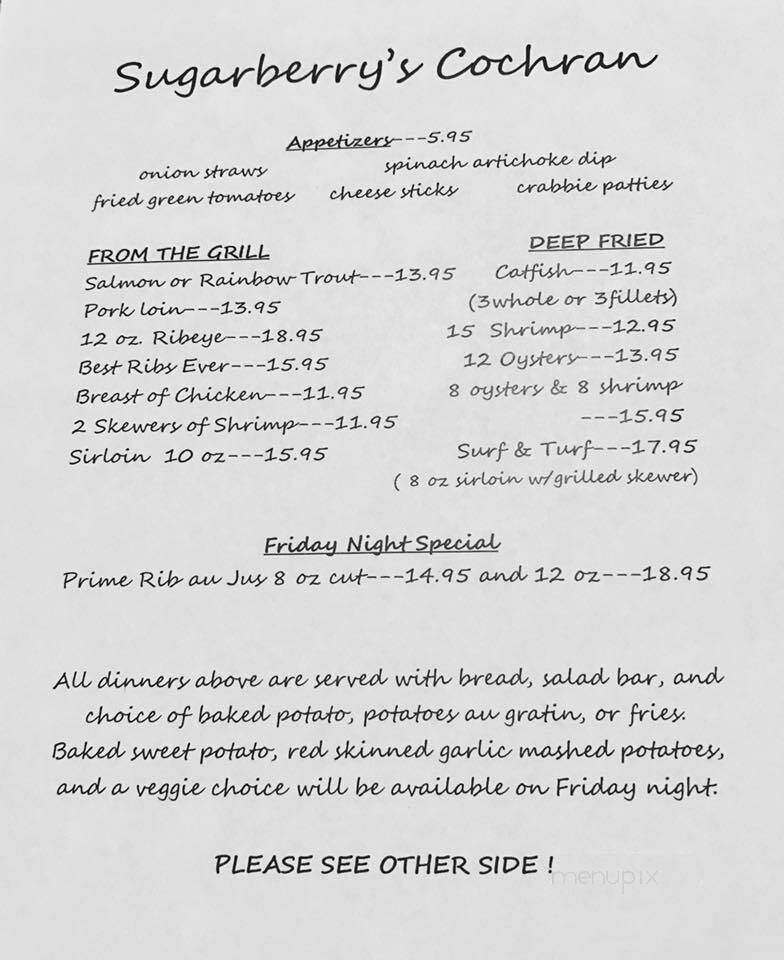 Sugarberry's Cochran
Appetizers---5.95
onion straws spinach artichoke dip
fried green tomatoes cheese sticks crabbie patties
FROM THE GRILL
Salmon or Rainbow Trout---13.95
Pork loin---13.95
12 oz. Ribeye---18.95
Best Ribs Ever---15.95
Breast of Chicken---11.95
2 Skewers of Shrimp---11.95
Sirloin 10 oz---15.95
DEEP FRIED
Catfish---11.95
(3whole or 3fillets)
15 Shrimp---12.95
12 Oysters---13.95
8 oysters & 8 shrimp
---15.95
Surf & Turf---17.95
( 8 oz sirloin w/grilled skewer)
Friday Night Special
Prime Rib au Jus 8 oz cut---14.95 and 12 oz---18.95
All dinners above are served with bread, salad bar, and
choice of baked potato, potatoes au gratin, or fries.
Baked sweet potato, red skinned garlic mashed potatoes,
and a veggie choice will be available on Friday night.
PLEASE SEE OTHER SIDE !
menupix